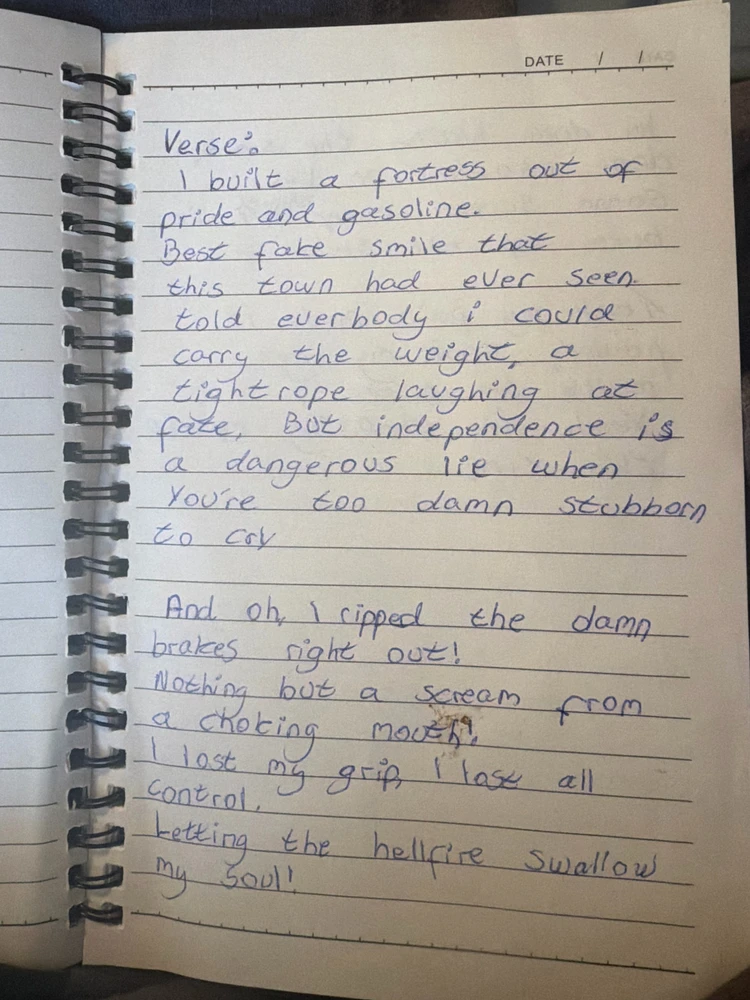 DATE / /
Verse:
I built a fortress out of
pride and gasoline.
Best fake smile that
this town had ever seen.
told everbody i could
carry the weight, a
tightrope laughing at
fate, But independence is
a dangerous lie when
You're too damn stubborn
to cry
And oh, I ripped the damn
brakes right out!
Nothing but a scream from
a choking mouth!
I lost my grip, I lose all
control.
Letting the hellfire swallow
my soul!